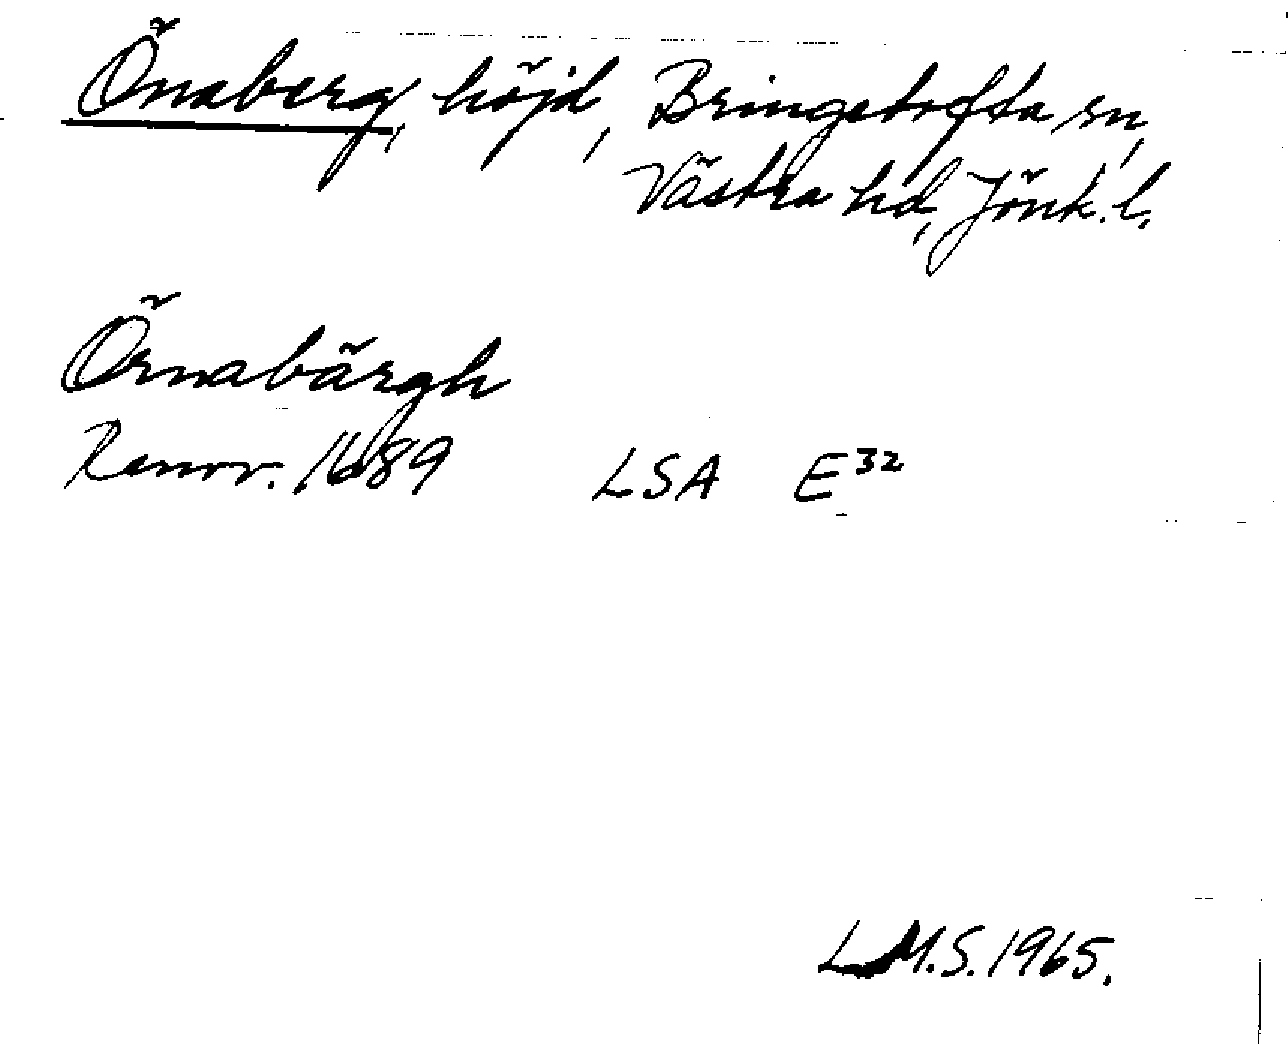 Önaberg, höjd, Bringetofta sn,
Västra hd, Jönk. l.
Örnabärgh
Renov. 1689 LSA E32
L.M.S. 1965.